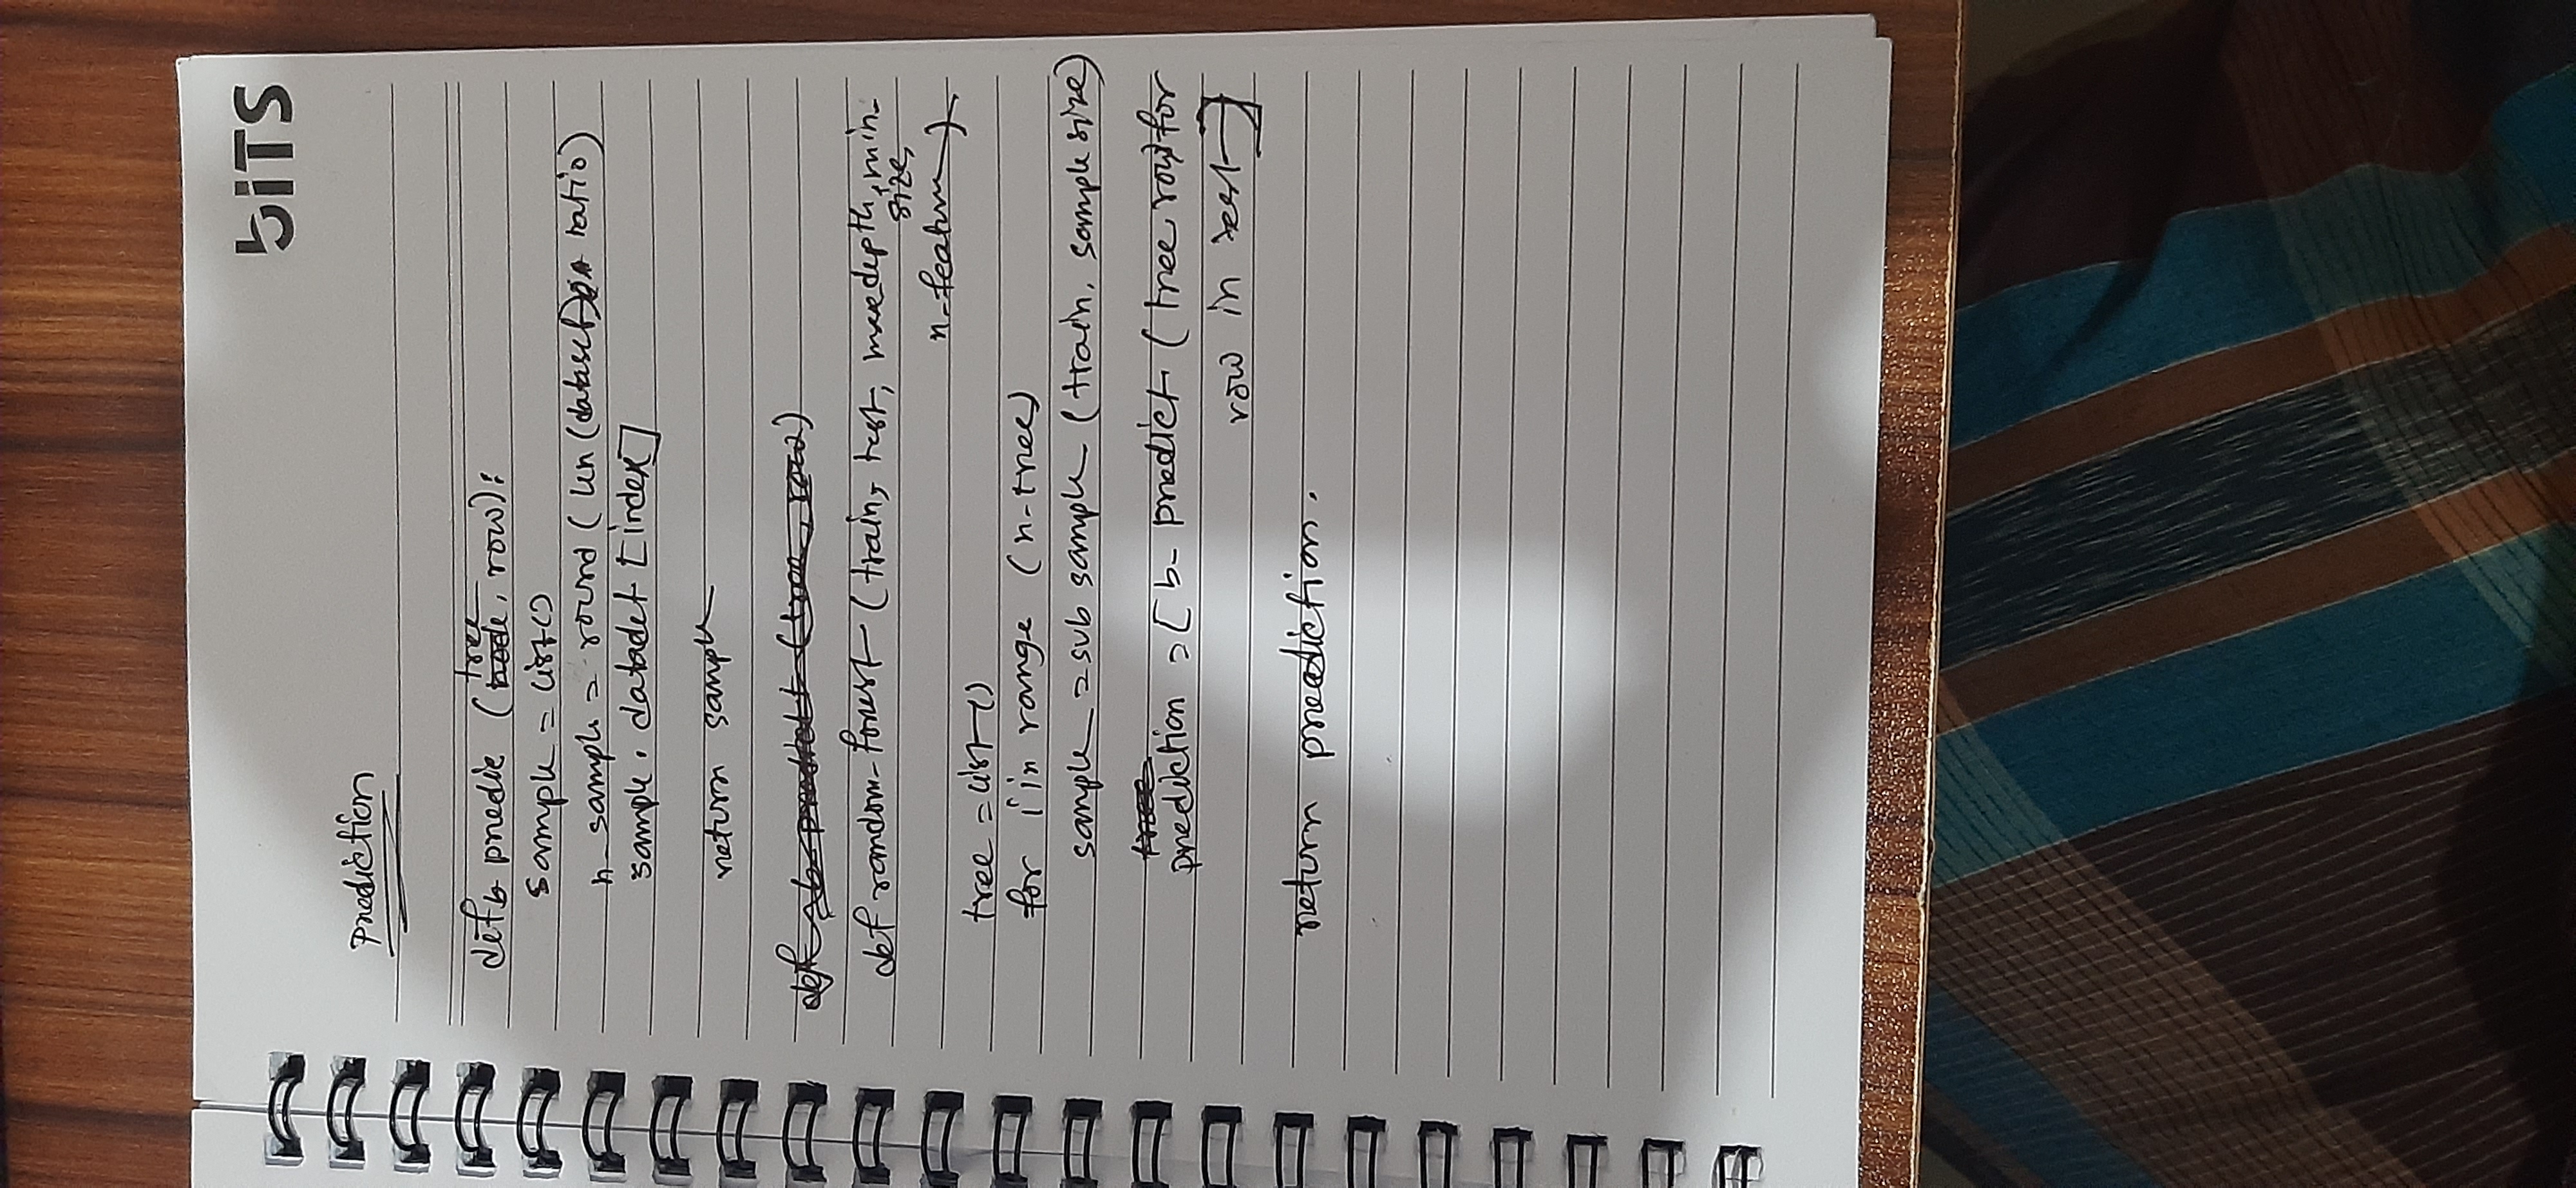 biTS
prediction
def b predic (tree, row):
sample = list()
n_sample = round (len (dataset) * ratio)
sample . datadet [index]
return sample
def b-predict (tree, row)
def random-forest (train, test, max depth, min-
size,
n-feature)
tree = list()
for i in range (n-tree)
sample = sub sample (train, sample size)
tree
prediction = [ b- predict (tree row) for
row in test ]
return prediction.